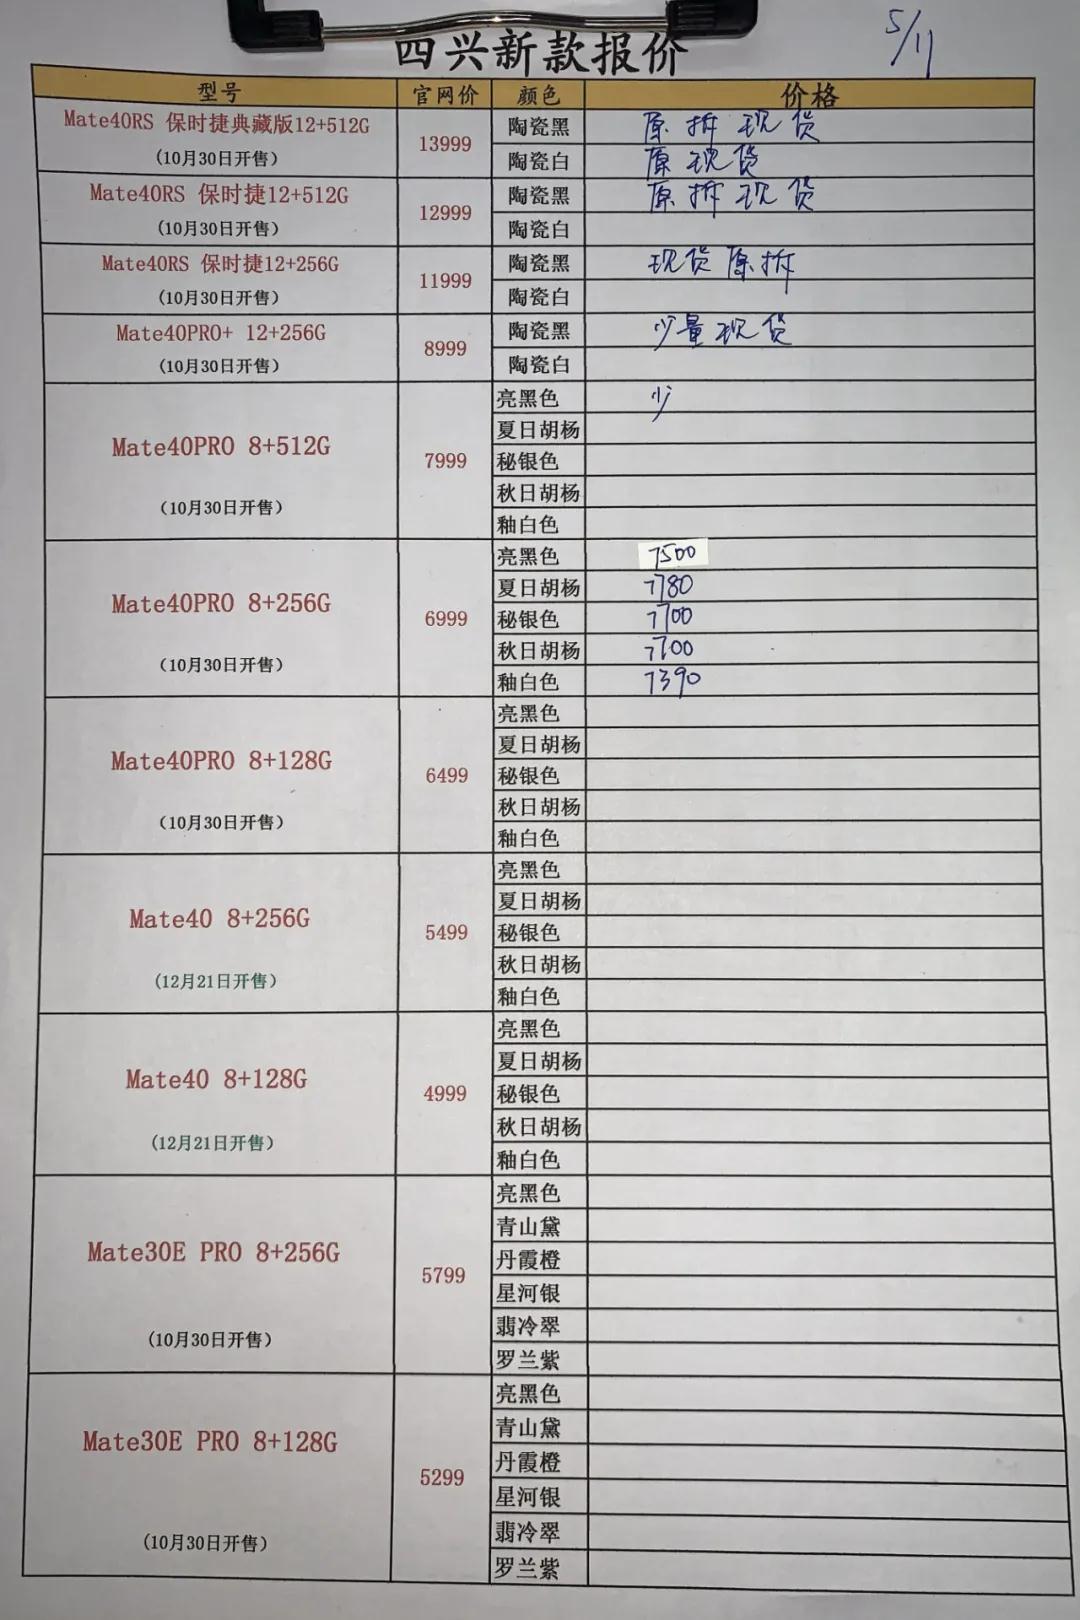 5/11
四兴新款报价
型号 官网价 颜色 价格
Mate40RS 保时捷典藏版12+512G
(10月30日开售)
13999
陶瓷黑 原拆现货
陶瓷白 原现货
Mate40RS 保时捷12+512G
(10月30日开售)
12999
陶瓷黑 原拆现货
陶瓷白
Mate40RS 保时捷12+256G
(10月30日开售)
11999
陶瓷黑 现货原拆
陶瓷白
Mate40PRO+ 12+256G
(10月30日开售)
8999
陶瓷黑 少量现货
陶瓷白
Mate40PRO 8+512G
(10月30日开售)
7999
亮黑色 少
夏日胡杨
秘银色
秋日胡杨
釉白色
Mate40PRO 8+256G
(10月30日开售)
6999
亮黑色 7500
夏日胡杨 7780
秘银色 7700
秋日胡杨 7700
釉白色 7390
Mate40PRO 8+128G
(10月30日开售)
6499
亮黑色
夏日胡杨
秘银色
秋日胡杨
釉白色
Mate40 8+256G
(12月21日开售)
5499
亮黑色
夏日胡杨
秘银色
秋日胡杨
釉白色
Mate40 8+128G
(12月21日开售)
4999
亮黑色
夏日胡杨
秘银色
秋日胡杨
釉白色
Mate30E PRO 8+256G
(10月30日开售)
5799
亮黑色
青山黛
丹霞橙
星河银
翡冷翠
罗兰紫
Mate30E PRO 8+128G
(10月30日开售)
5299
亮黑色
青山黛
丹霞橙
星河银
翡冷翠
罗兰紫